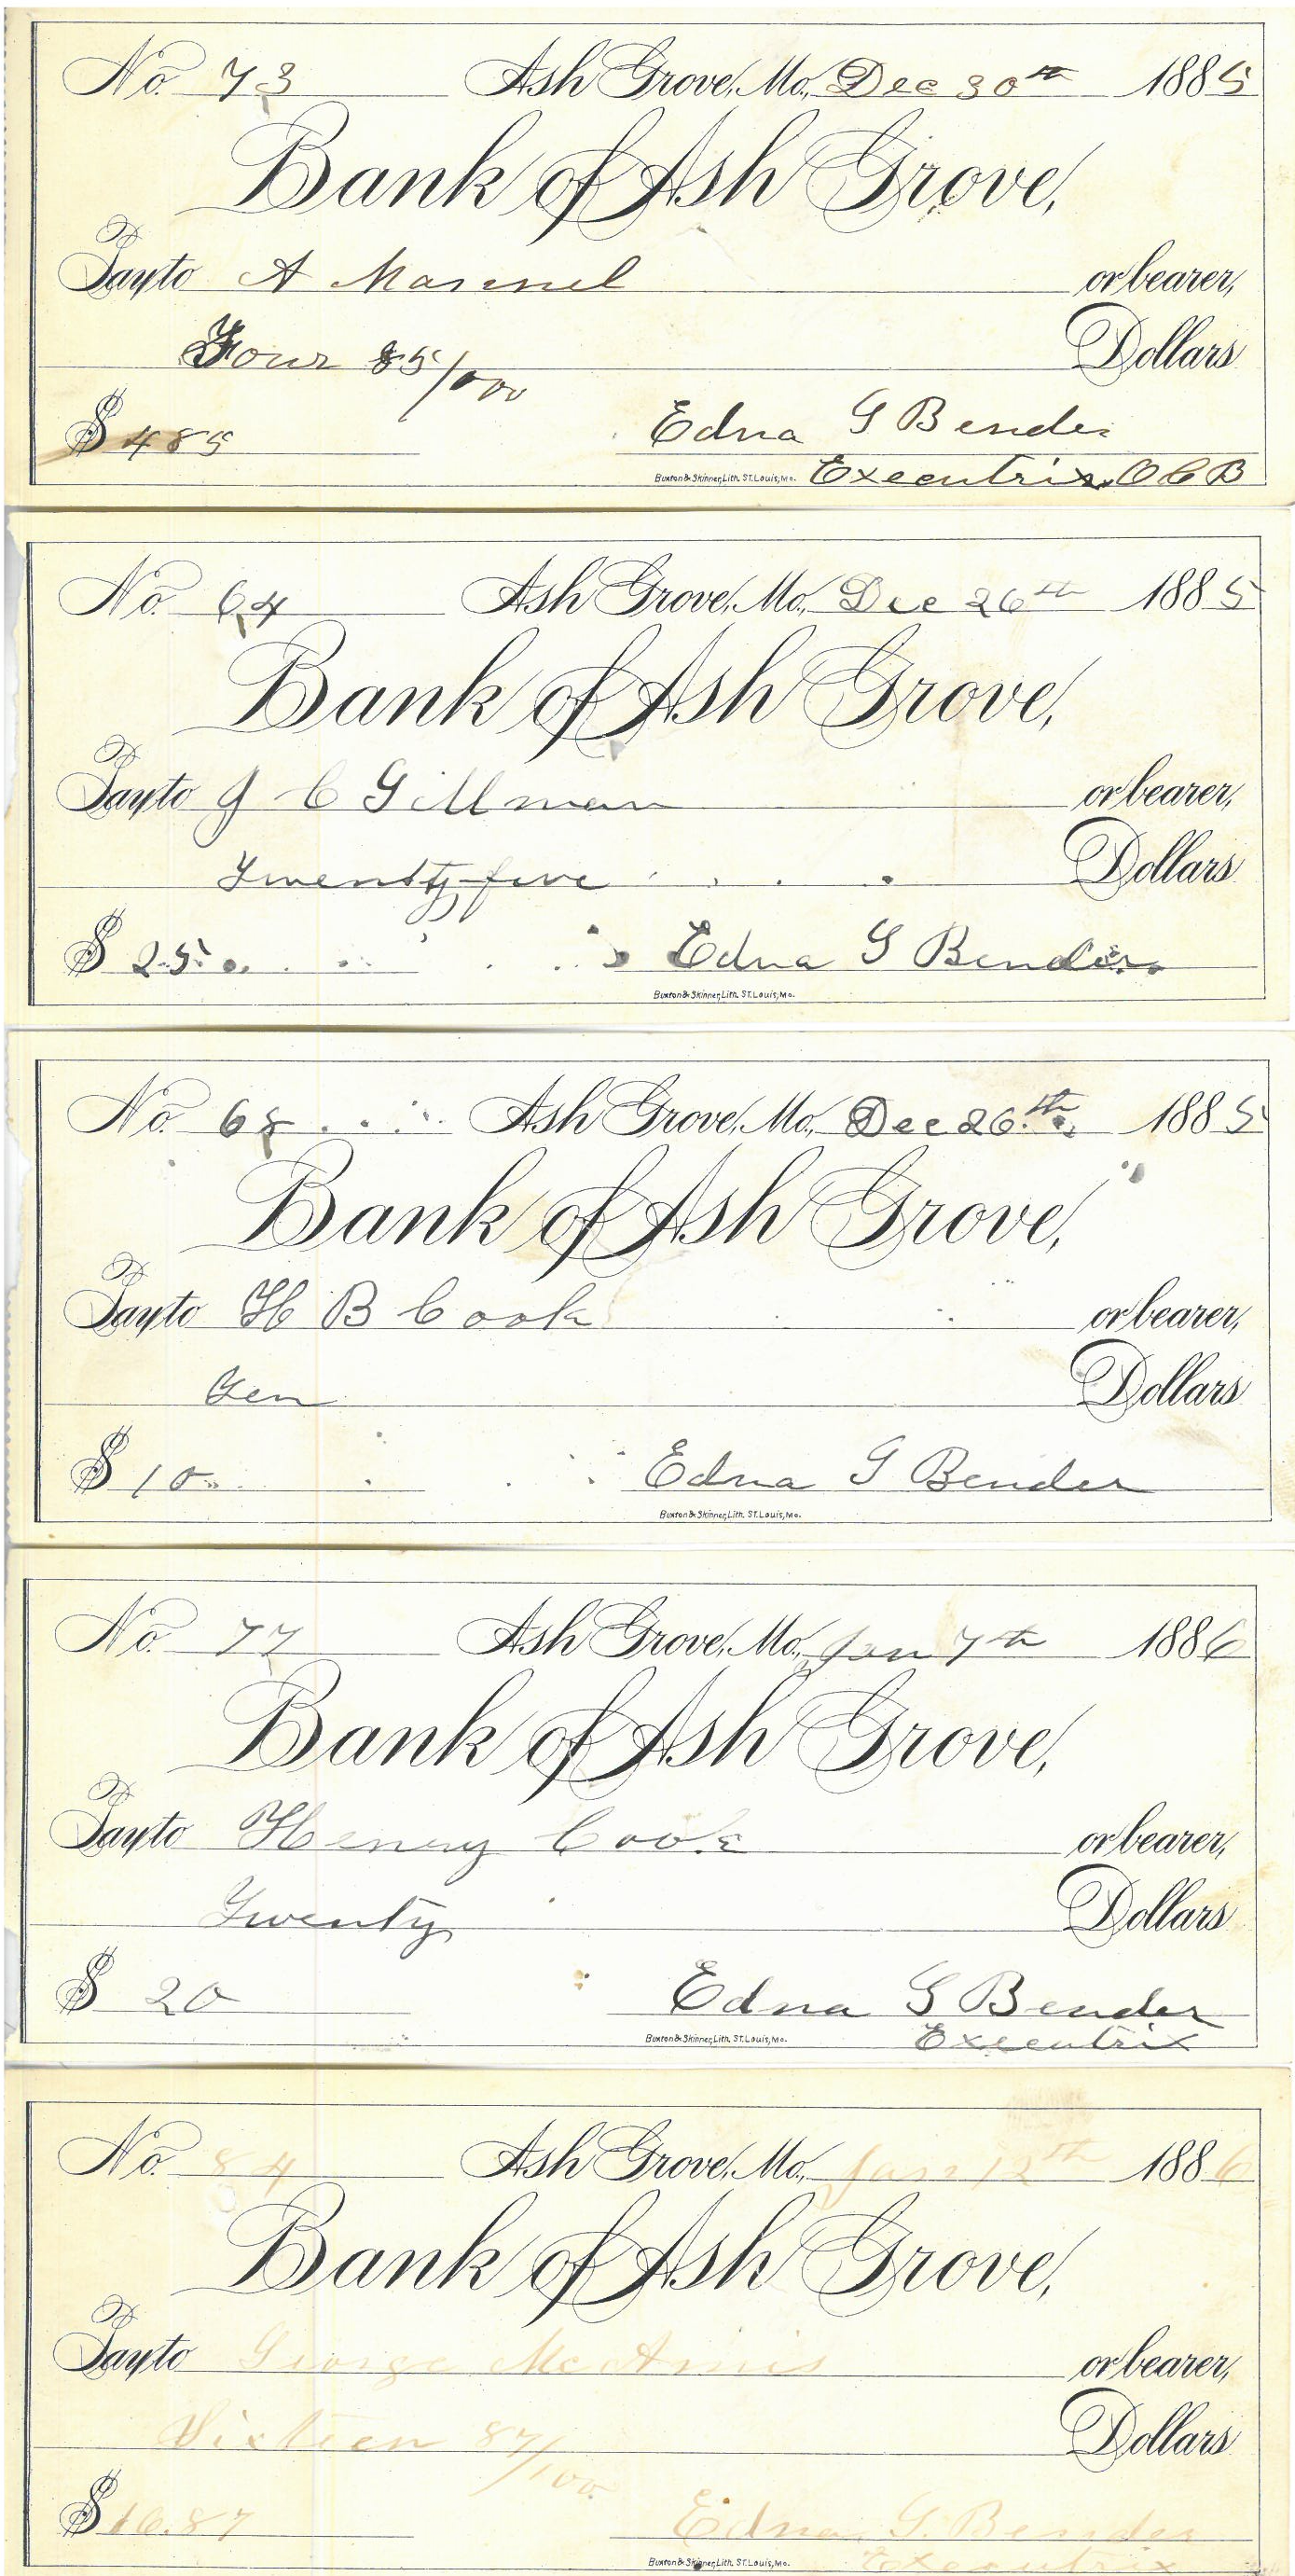 No. 73 Ash Grove, Mo., Dec 30th 1885
Bank of Ash Grove,
Pay to A Marsnel or bearer,
Four 85/100 Dollars
$ 485 Edna G Bender
Buxton & Skinner, Lith. St. Louis, Mo. Executrix O C B
No. 64 Ash Grove, Mo., Dec 26th 1885
Bank of Ash Grove,
Pay to J C Gillman or bearer,
Twenty five Dollars
$ 25 Edna G Bender
Buxton & Skinner, Lith. St. Louis, Mo.
No. 68 Ash Grove, Mo., Dec 26th 1885
Bank of Ash Grove,
Pay to H B Cook or bearer,
Ten Dollars
$ 10 Edna G Bender
Buxton & Skinner, Lith. St. Louis, Mo.
No. 77 Ash Grove, Mo., Jan 7th 1886
Bank of Ash Grove,
Pay to Henry Cook or bearer,
Twenty Dollars
$ 20 Edna G Bender
Buxton & Skinner, Lith. St. Louis, Mo. Executrix
No. 84 Ash Grove, Mo., Jan 12th 1886
Bank of Ash Grove,
Pay to George McAmis or bearer,
Sixteen 87/100 Dollars
$ 16.87 Edna G. Bender
Buxton & Skinner, Lith. St. Louis, Mo. Executrix